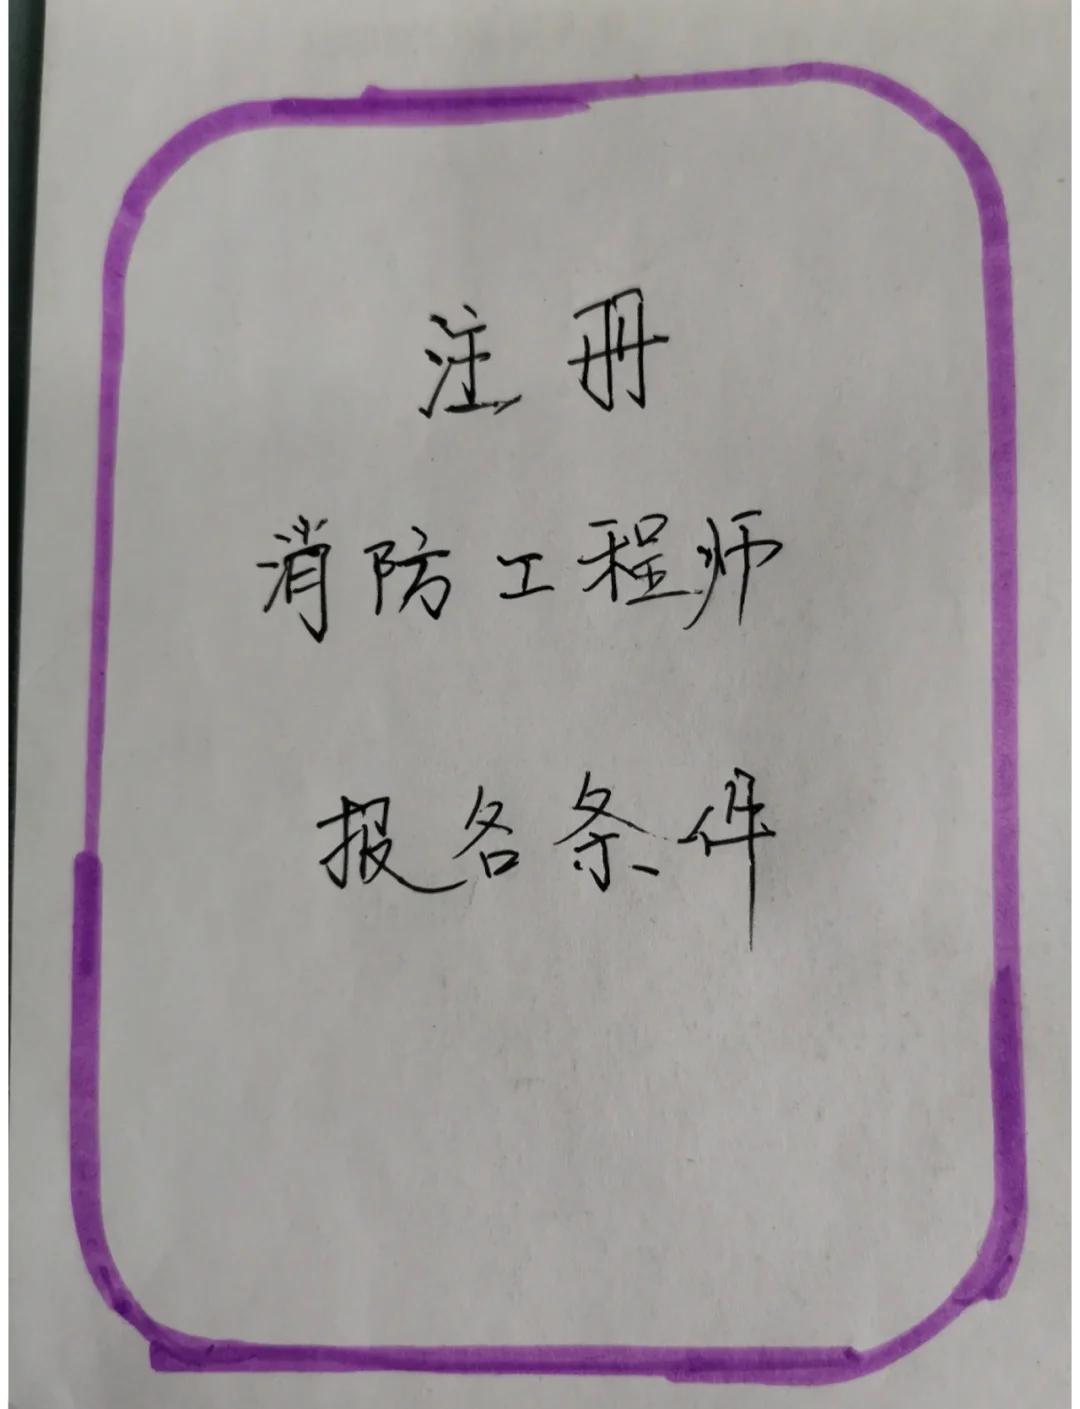 注册
消防工程师
报名条件